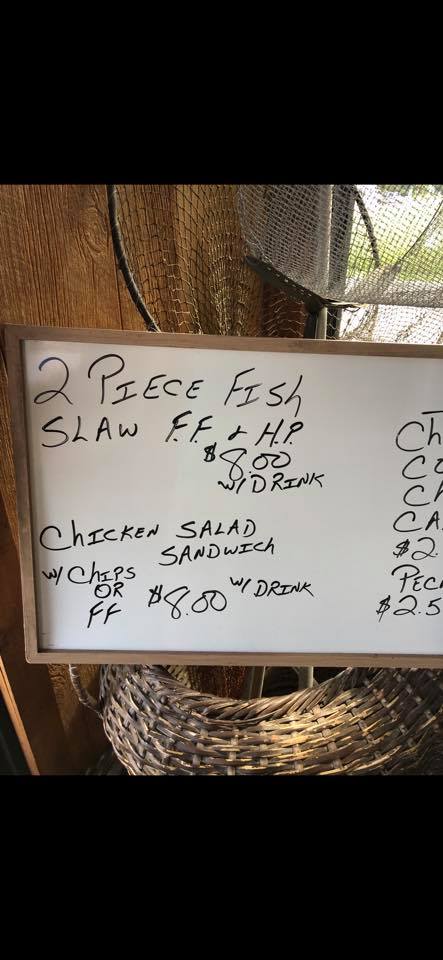 2 PIECE FISH
SLAW F.F. & H.P.
$8.00
W/ DRINK
CHICKEN SALAD
SANDWICH
W/ CHIPS
OR
FF
$8.00
W/ DRINK
Ch
CO
Ch
CA
$2.
PEC
$2.5